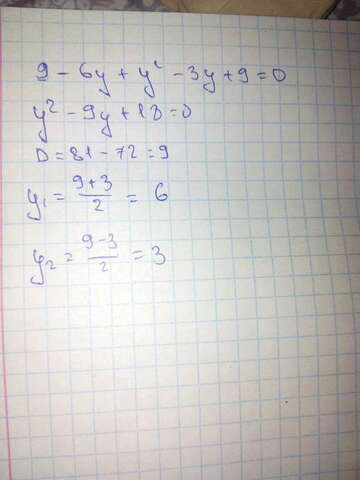 9 - 6y + y² - 3y + 9 = 0
y² - 9y + 18 = 0
D = 81 - 72 = 9
y₁ = (9+3)/2 = 6
y₂ = (9-3)/2 = 3